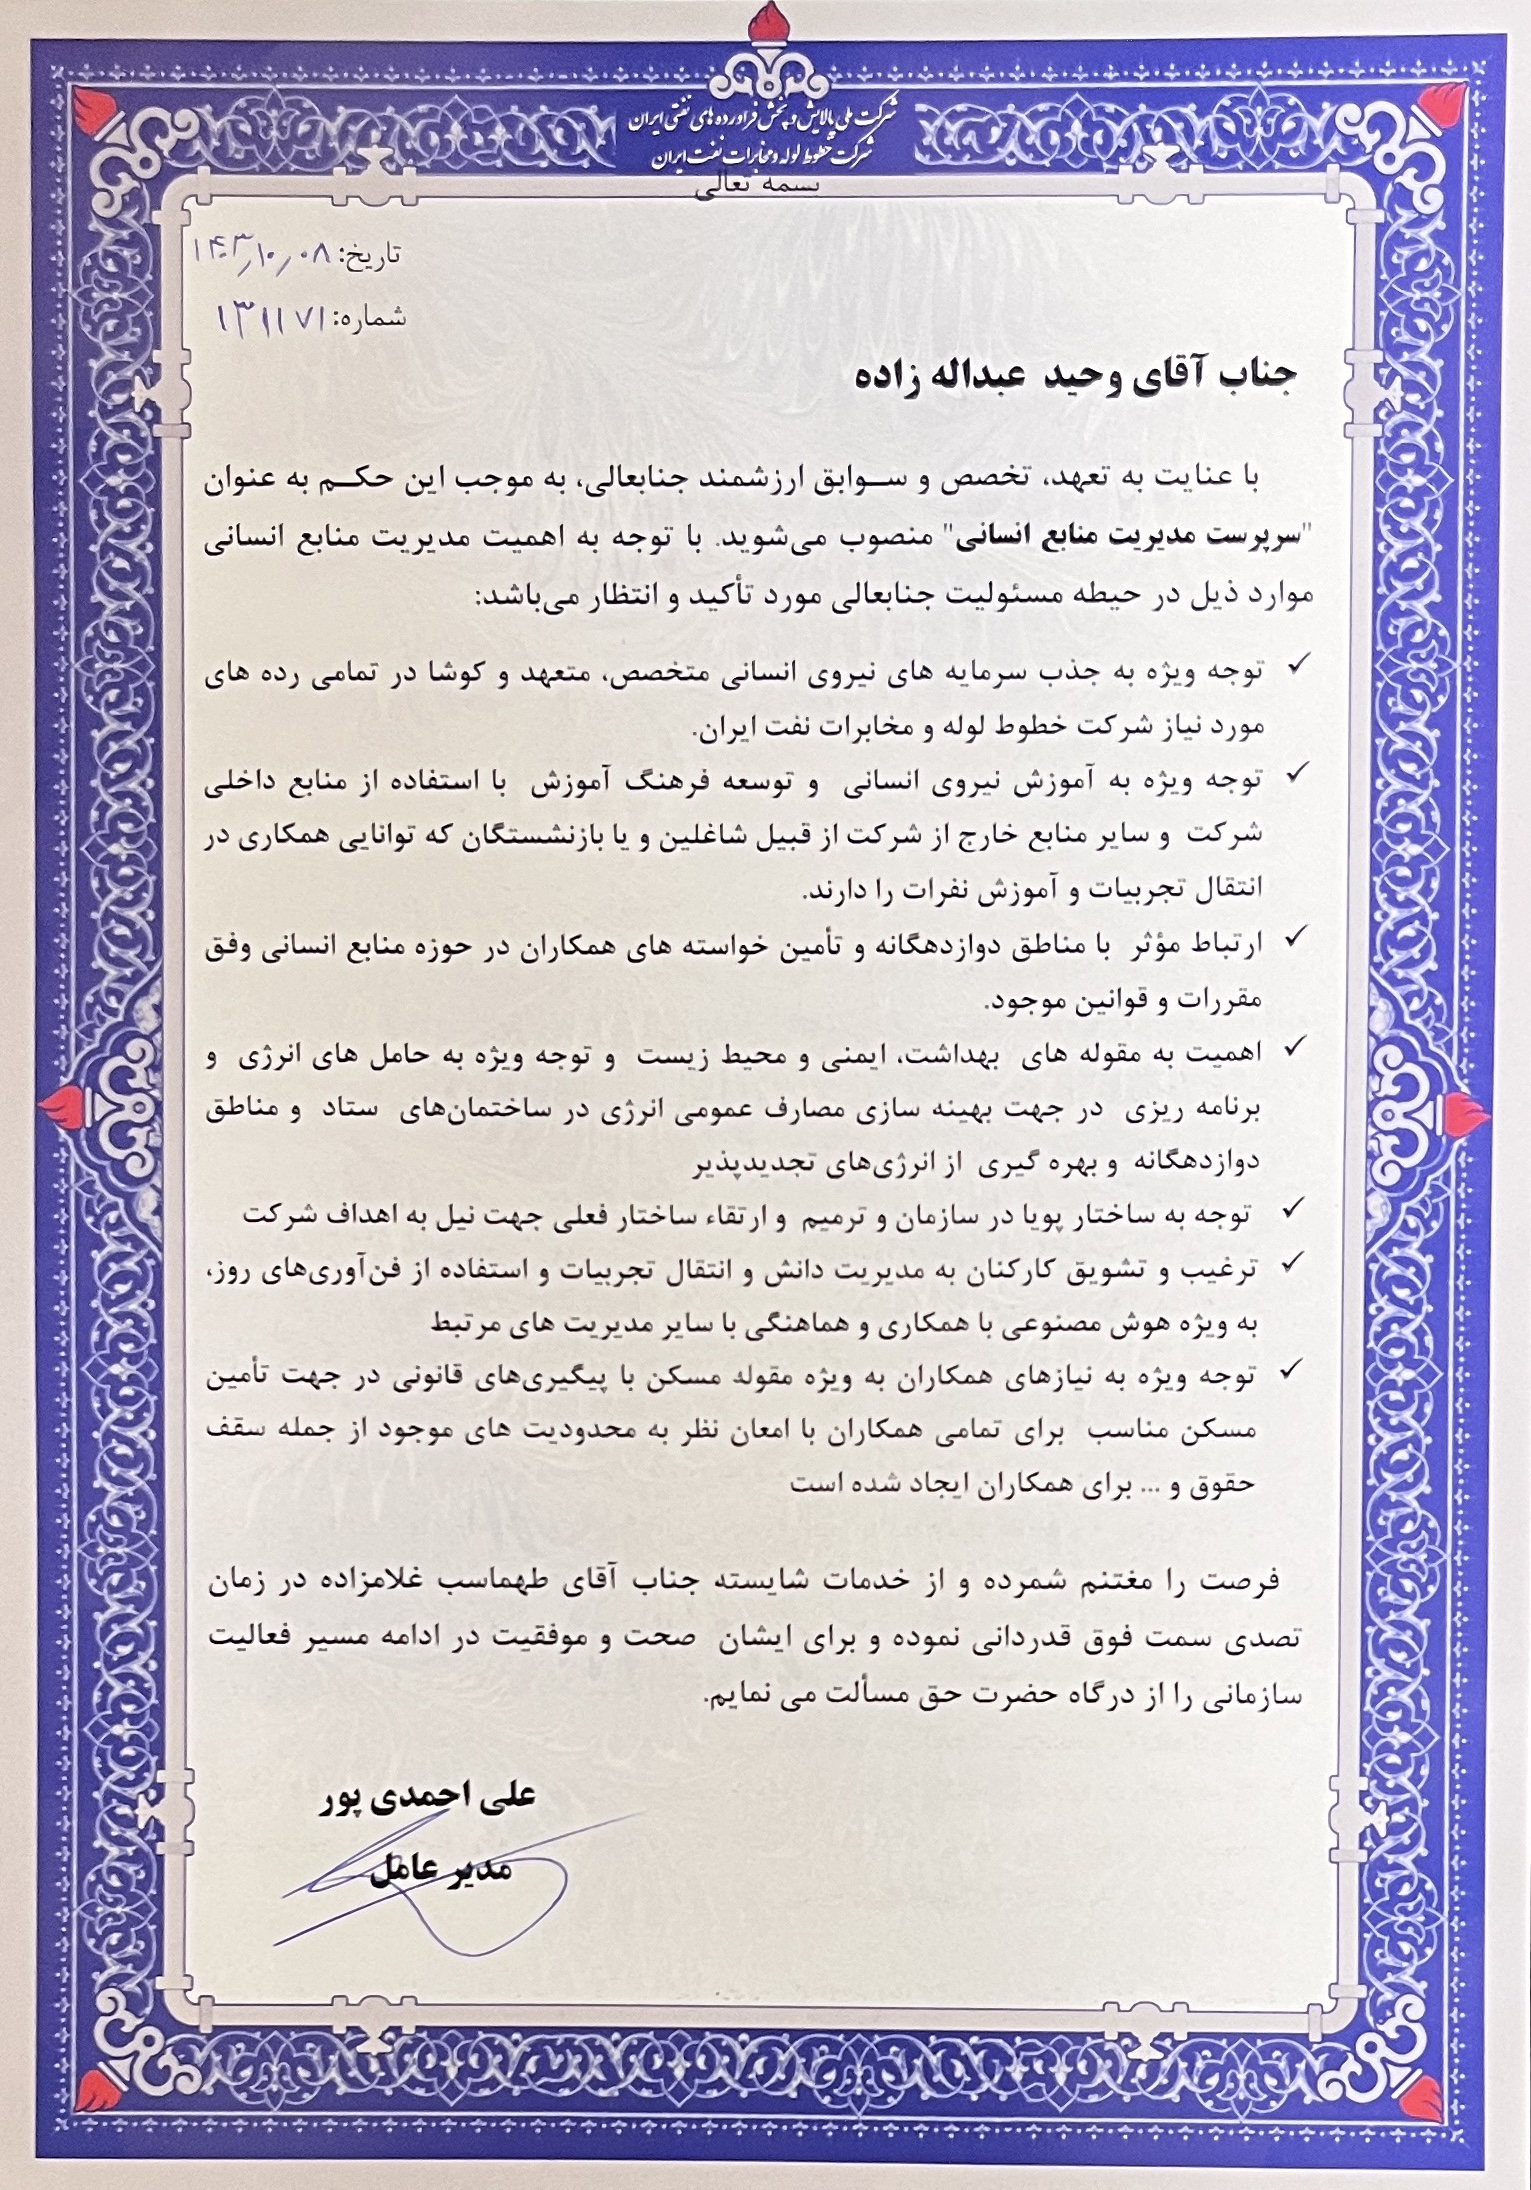 شرکت ملی پالایش و پخش فرآورده های نفتی ایران
شرکت خطوط لوله و مخابرات نفت ایران
بسمه تعالی
تاریخ: ۱۴۰۳/۱۰/۰۸
شماره: ۱۳۱۱۷۱
جناب آقای وحید عبداله زاده
با عنایت به تعهد، تخصص و سـوابق ارزشمند جنابعالی، به موجب این حکـم به عنوان
"سرپرست مدیریت منابع انسانی" منصوب می‌شوید. با توجه به اهمیت مدیریت منابع انسانی
موارد ذیل در حیطه مسئولیت جنابعالی مورد تأکید و انتظار می‌باشد:
✓ توجه ویژه به جذب سرمایه های نیروی انسانی متخصص، متعهد و کوشا در تمامی رده های
مورد نیاز شرکت خطوط لوله و مخابرات نفت ایران.
✓ توجه ویژه به آموزش نیروی انسانی و توسعه فرهنگ آموزش با استفاده از منابع داخلی
شرکت و سایر منابع خارج از شرکت از قبیل شاغلین و یا بازنشستگان که توانایی همکاری در
انتقال تجربیات و آموزش نفرات را دارند.
✓ ارتباط مؤثر با مناطق دوازدهگانه و تأمین خواسته های همکاران در حوزه منابع انسانی وفق
مقررات و قوانین موجود.
✓ اهمیت به مقوله های بهداشت، ایمنی و محیط زیست و توجه ویژه به حامل های انرژی و
برنامه ریزی در جهت بهینه سازی مصارف عمومی انرژی در ساختمان‌های ستاد و مناطق
دوازدهگانه و بهره گیری از انرژی‌های تجدیدپذیر
✓ توجه به ساختار پویا در سازمان و ترمیم و ارتقاء ساختار فعلی جهت نیل به اهداف شرکت
✓ ترغیب و تشویق کارکنان به مدیریت دانش و انتقال تجربیات و استفاده از فن‌آوری‌های روز،
به ویژه هوش مصنوعی با همکاری و هماهنگی با سایر مدیریت های مرتبط
✓ توجه ویژه به نیازهای همکاران به ویژه مقوله مسکن با پیگیری‌های قانونی در جهت تأمین
مسکن مناسب برای تمامی همکاران با امعان نظر به محدودیت های موجود از جمله سقف
حقوق و ... برای همکاران ایجاد شده است
فرصت را مغتنم شمرده و از خدمات شایسته جناب آقای طهماسب غلامزاده در زمان
تصدی سمت فوق قدردانی نموده و برای ایشان صحت و موفقیت در ادامه مسیر فعالیت
سازمانی را از درگاه حضرت حق مسألت می نمایم.
علی احمدی پور
مدیر عامل